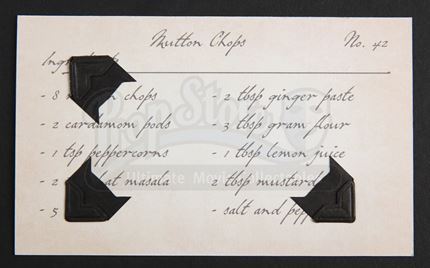 Mutton Chops No. 42
- 8 chops
- 2 cardamom pods
- 1 tsp peppercorns
- 2 masala
- 5
- 2 tbsp ginger paste
- 3 tbsp gram flour
- 1 tbsp lemon juice
2 tbsp mustard
- salt and
Prop Store
Ultimate Movie Collectables